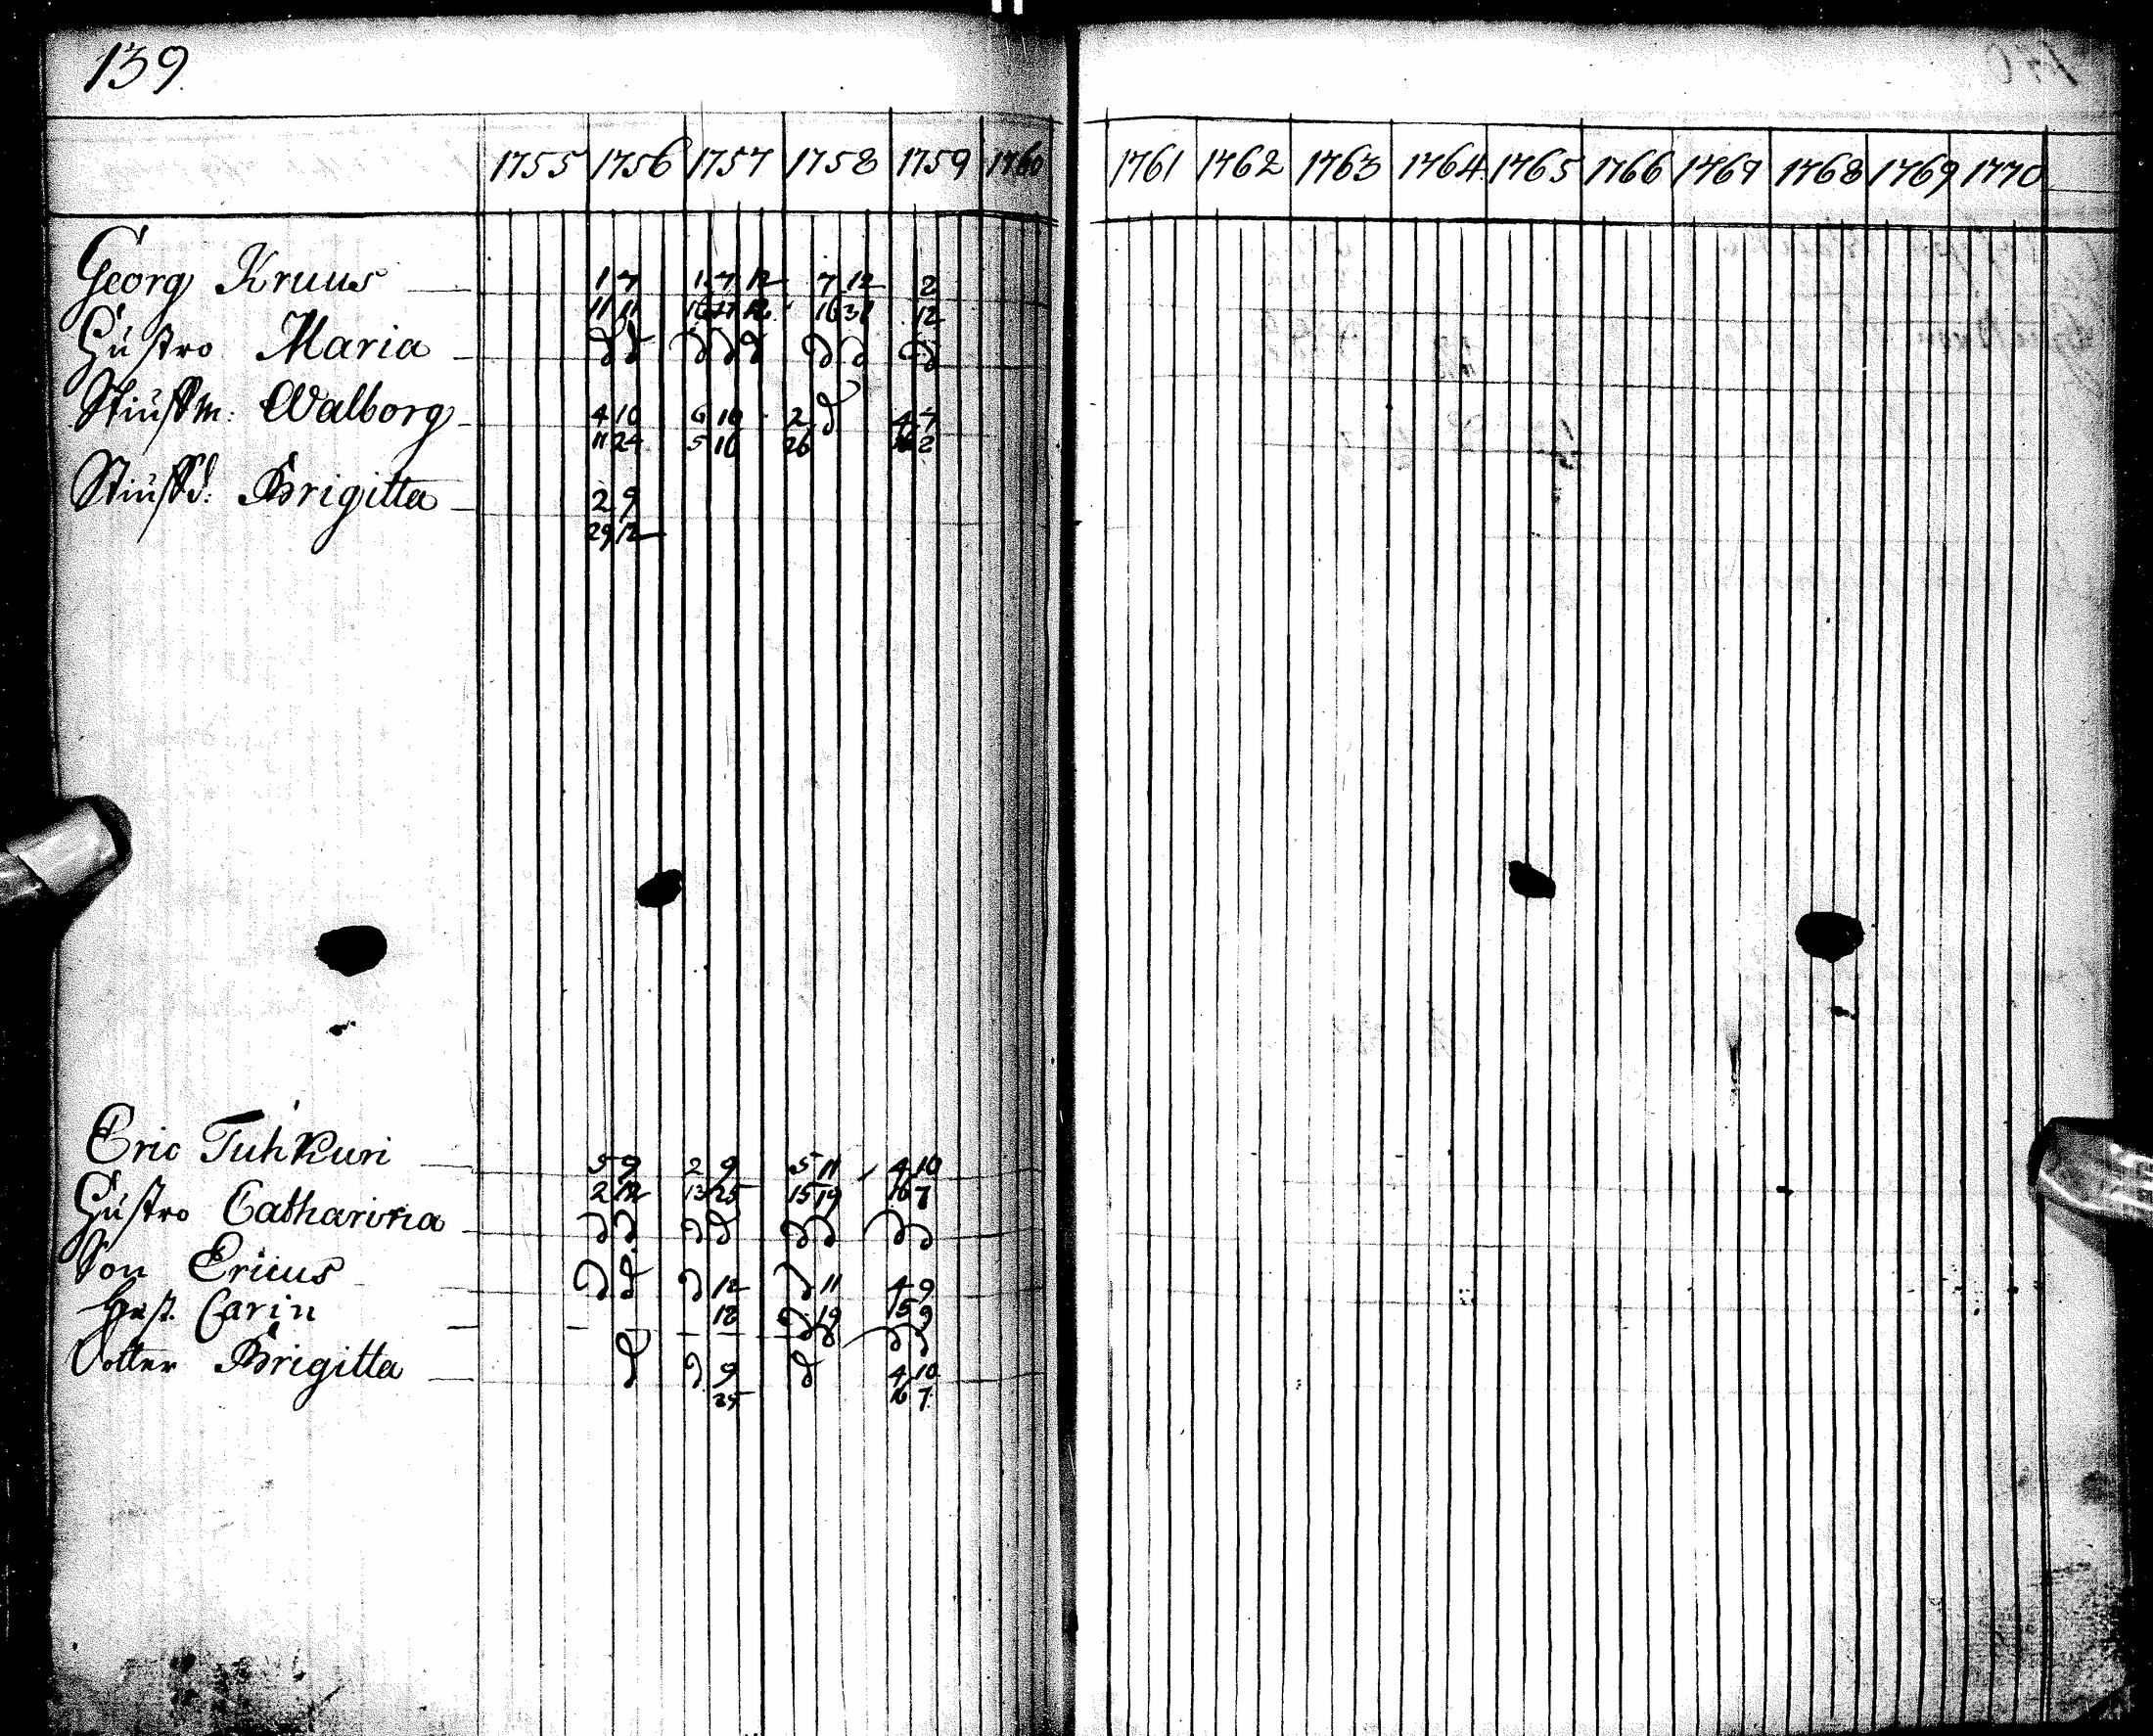 139.
1755 1756 1757 1758 1759 1760 1761 1762 1763 1764 1765 1766 1767 1768 1769 1770
Georg Kruus 1 7 1 7 12 7 12 2
11 11 16 12
Hústro Maria
Stiúffm: Walborg 4 10 6 10 2 4 7
11 24 5 10 26 2
Stiúffd: Brigitta 2 9
29 12
Eric Tuhkuri 5 9 2 9 5 11 4 10
2 12 13 25 15 19 16 7
Hústro Catharina
Son Ericus 12 11 4 9
Hust. Carin 18 19 15 9
Dotter Brigitta 9 4 10
25 16 7